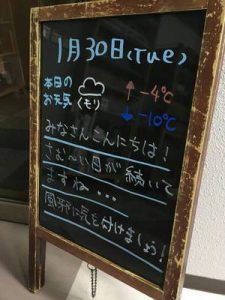 1月30日(Tue)
本日の
お天気
くモリ
↑-4℃
↓-10℃
みなさんこんにちは!
さむ〜い日が続いて
ますね…
風邪に気を付けましょう!